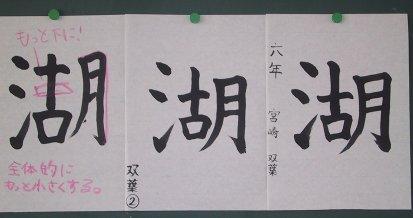 もっと下に!
湖
全体的に
もっと小さくする。
湖
双葉②
湖
六年 宮崎 双葉